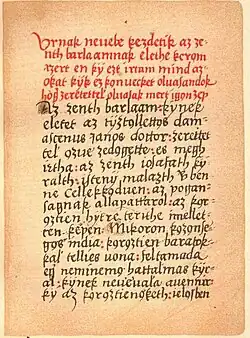 Vrnak neuebe kezdetik az ze
nth barlaamnak elethe kerom
azert en ky ezt irtam mind az
okat kyk ez konvecket olvasandok
hog zeretettel olvasak mert igon zep
Az zenth barlaam: kynek
eletet az tyztolletos dam
ascenus janos dottor: zerettet
tel ozue zedogette: es megh
irtha: az zenth iosafath ky
ralth: isteny malazth v benn
ne Cellekoduen: az pogan
sagnak allapattarol: az kor
oztien hytre teruthe imellet
ten kepen. Mikoron, kozonse
gos india: koroztien baratok
kal tellies volna: feltamada
eg neminemo hathalmas kyr
al: kynek neue uala auennir
ky az koroztiengketh: ielosben